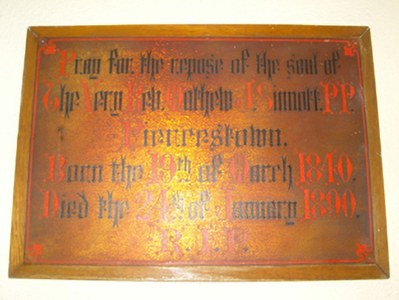 Pray for the repose of the soul of
The Very Rev. Mathew J. Sinnott. P.P.
Piercestown.
Born the 19th of March 1840.
Died the 24th of January 1890.
R.I.P.